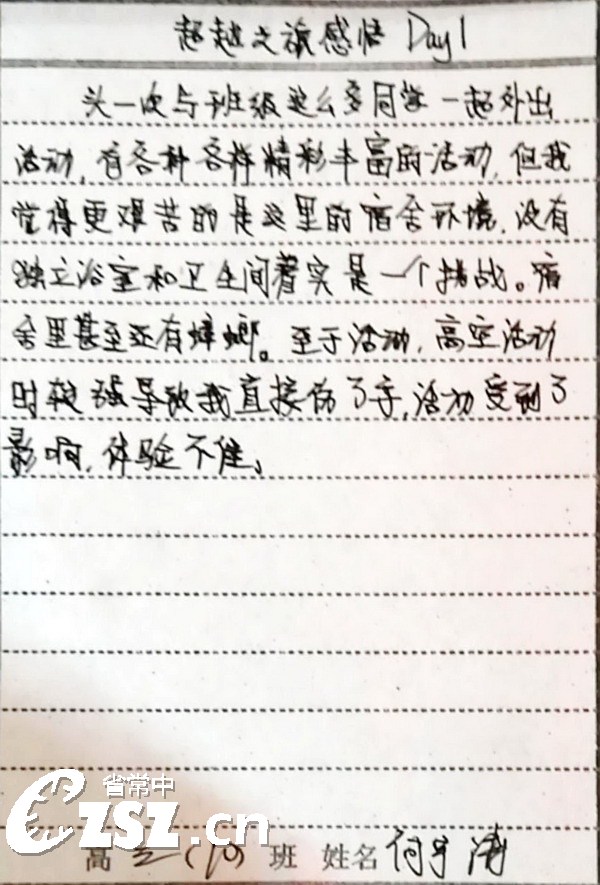 超越之旅感悟 Day1
头一次与班级这么多同学一起外出
活动,有各种各样精彩丰富的活动,但我
觉得更艰苦的是这里的宿舍环境,没有
独立浴室和卫生间着实是一个挑战。宿
舍里甚至还有蟑螂。至于活动,高空活动
时较强导致我直接伤了手,活动受到了
影响,体验不佳。
省常中
CZSZ.cn
高 班 姓名 何宇涛